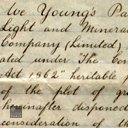 We Young's Pa
Light and Minera
Company (Limited)
ated under The Com
Act 1862" heritable
of the plot of gr
hereinafter disponed
consideration of th